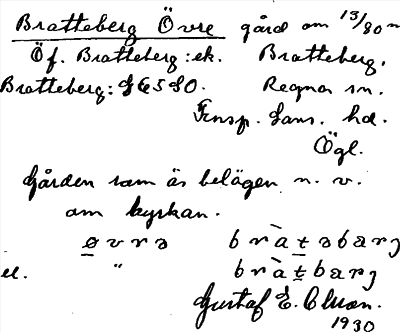 Bratteberg Övre gård om 13/80 m
Öf. Bratteberg: ek. Bratteberg,
Bratteberg: GESGO. Regna sn.
Finsp. läns. hd.
Ögl.
Gården som är belägen n. v.
om kyrkan.
øvrə bràtəbarj
el. " bràtbarj
Gustaf E. Cluson.
1930